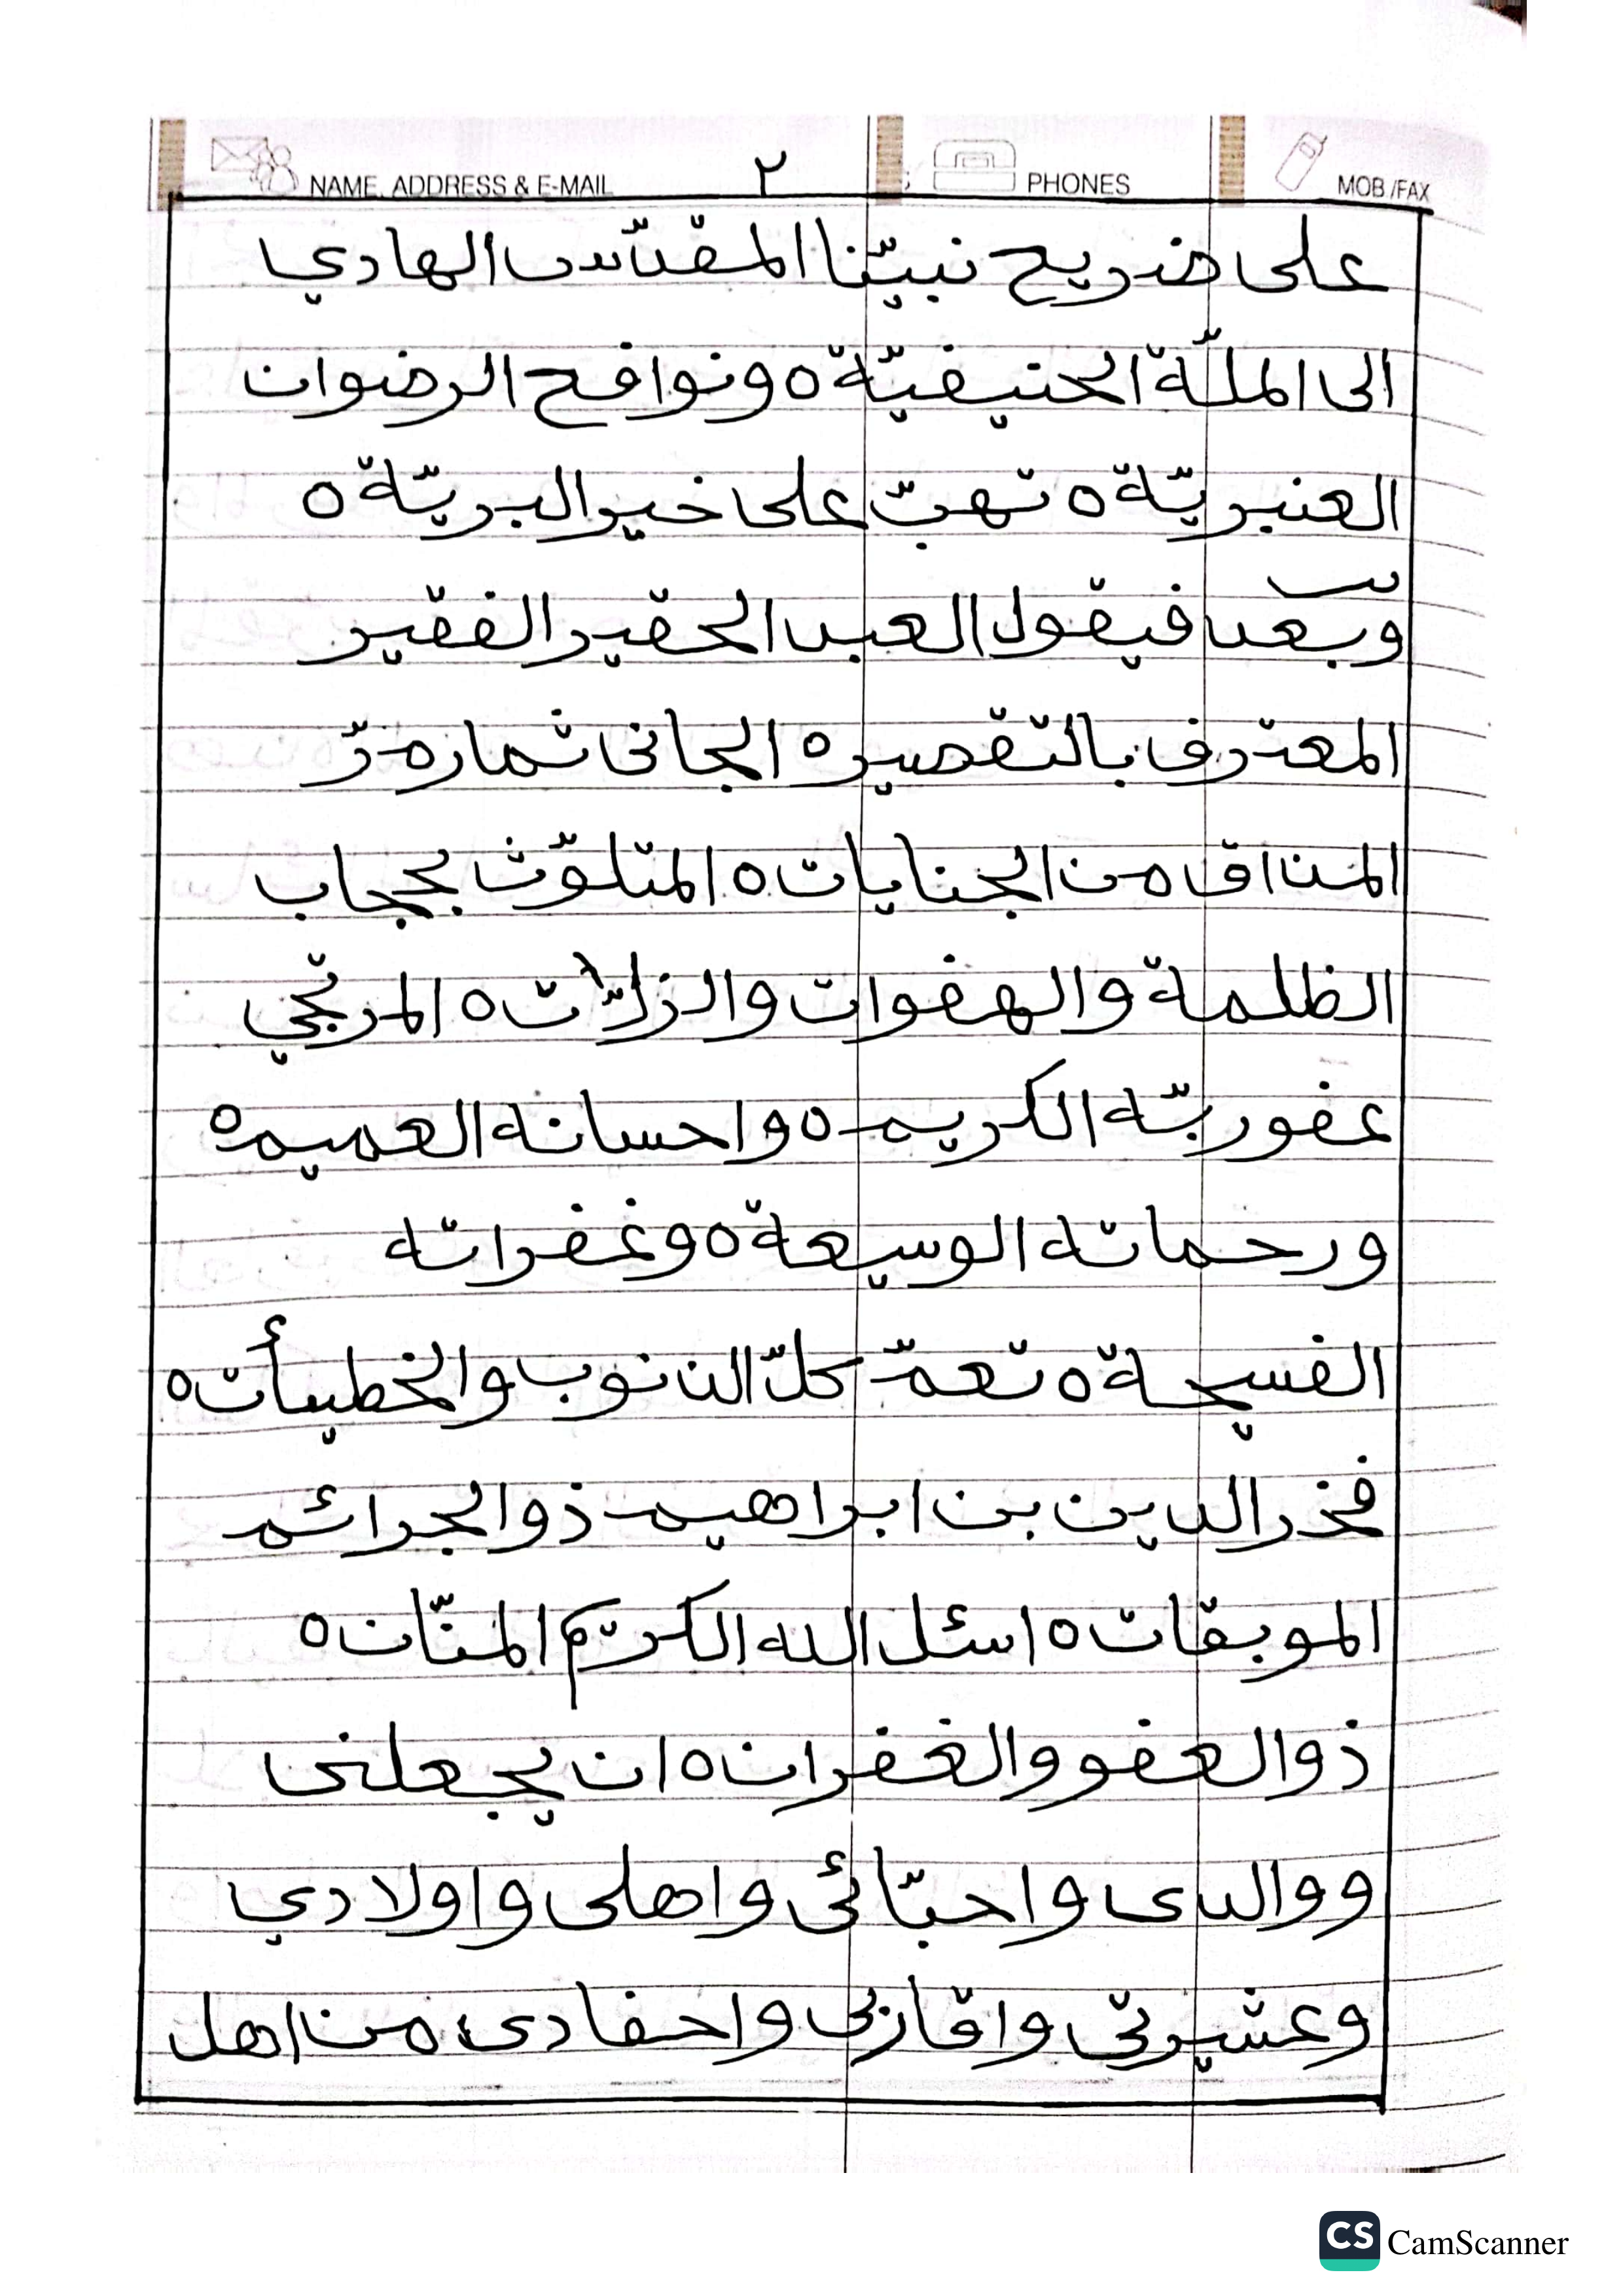 NAME, ADDRESS & E-MAIL ٢ PHONES MOB /FAX
على ضريح نبيّنا المقدّس الهادي
الى الملّة الحنيفيّة ٥ ونوافح الرضوان
العنبريّة ٥ تهبّ على خير البريّة ٥
وبعد فيقول العبد الحقير الفقير
المعترف بالتقصير ٥ الجانى ثمارہ مرّ
المذاق من الجنايات ٥ المتلوّث بحجاب
الظلمة والهفوات والزلّات ٥ المرتجي
عفو ربّه الكريم ٥ واحسانه العميم ٥
ورحماته الوسيعة ٥ وغفرانه
الفسيحة ٥ تعمّ كلّ الذنوب والخطيأت ٥
فخر الدين بن ابراهيم ذو الجرائم
الموبقات ٥ اسئل الله الكريم المنّان ٥
ذو العفو والغفران ٥ ان يجعلنى
ووالدى واحبّائى واهلى واولادي
وعشيرتي واقاربى واحفادى من اهل
CS CamScanner